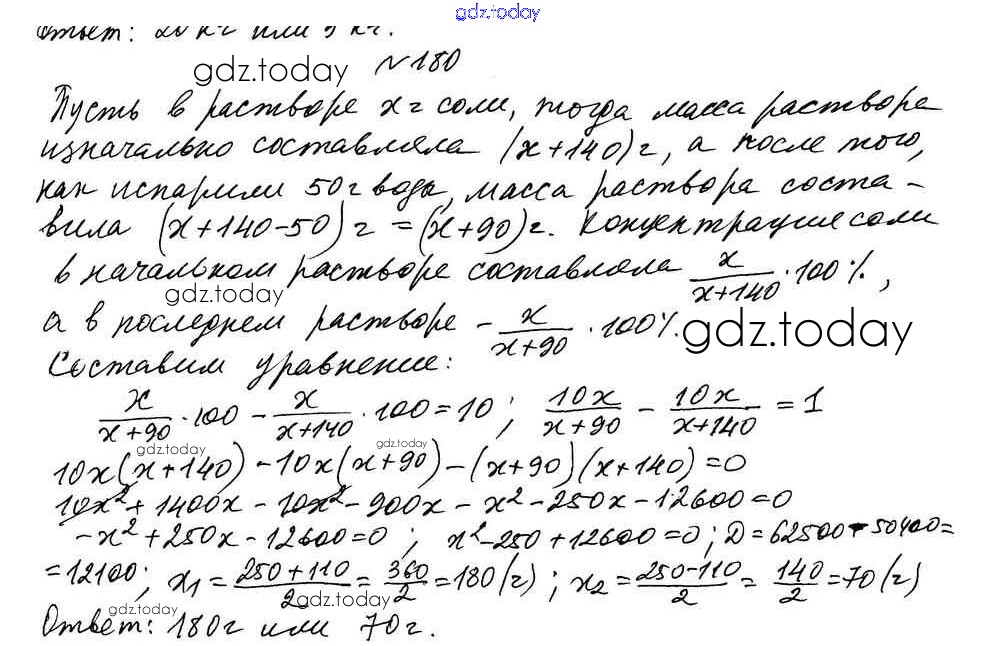 gdz.today
Ответ: 20 кг или 5 кг.
gdz.today №180
Пусть в растворе x г соли, тогда масса раствора
изначально составляла (x+140)г, а после того,
как испарили 50г воды, масса раствора соста-
вила (x+140-50) г = (x+90)г. Концентрация соли
в начальном растворе составляла x/(x+140) · 100%,
gdz.today
а в последнем растворе - x/(x+90) · 100%. gdz.today
Составим уравнение:
x/(x+90) · 100 - x/(x+140) · 100 = 10; 10x/(x+90) - 10x/(x+140) = 1
gdz.today gdz.today
10x(x+140) - 10x(x+90) - (x+90)(x+140) = 0
10x² + 1400x - 10x² - 900x - x² - 250x - 12600 = 0
-x² + 250x - 12600 = 0; x² - 250 + 12600 = 0; D = 62500 - 50400 =
= 12100; x₁ = (250+110)/2 = 360/2 = 180 (г); x₂ = (250-110)/2 = 140/2 = 70 (г)
gdz.today gdz.today
Ответ: 180г или 70г.